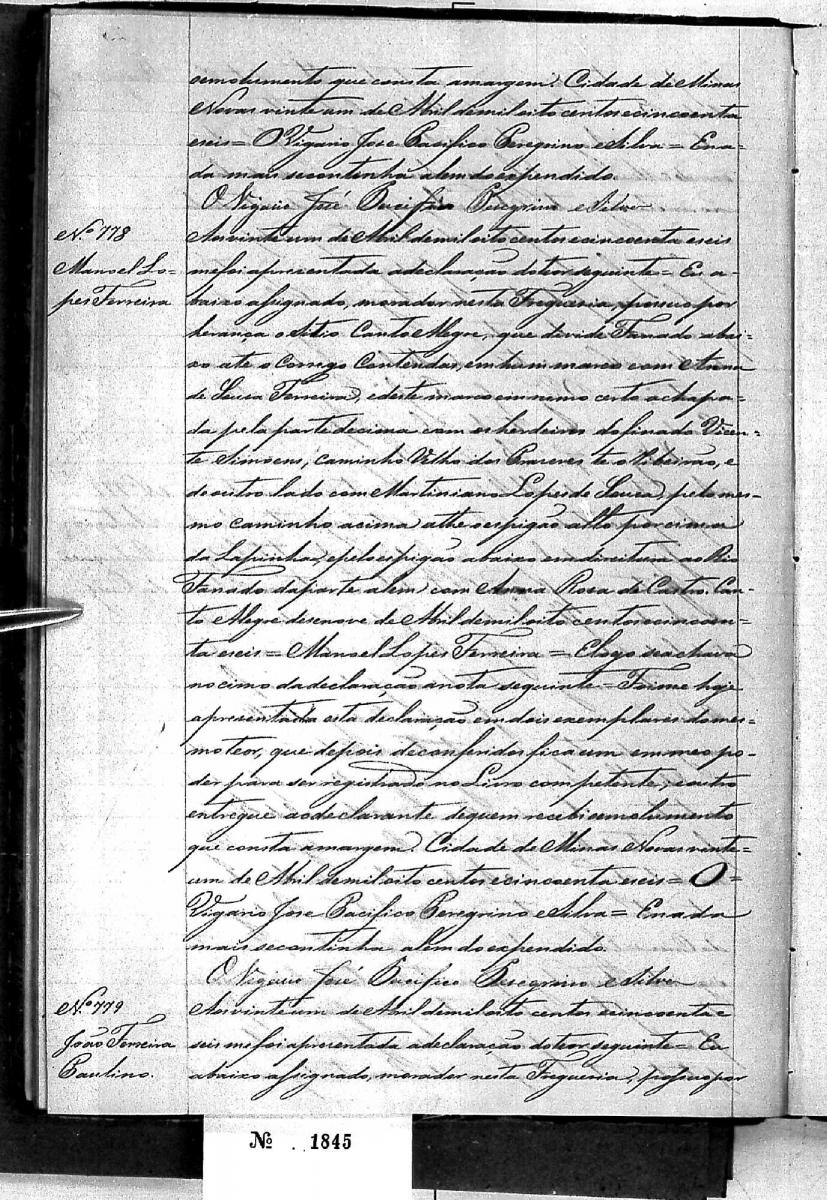 emolumento que consta amargem. Cidade de Minas
Novas vinte um de Abril demil oito centos ecincoenta
eseis = O Vigario Jose Pacifico Peregrino eSilva = Ena-
da mais secontinha alem do expendido.
O Vigario José Pacifico Peregrino e Silva
Nº 778
Manoel Lo-
pes Ferreira
Aos vinte um de Abril demil oito centos ecincoenta eseis
me foi apresentada adeclaração doteor seguinte = Eu a-
baixo assignado, morador nesta Freguesia, possuo por
herança o Sitio Canto Alegre, que divide Fanado abai-
xo até o Corrego Contendas, em hum marco com Anna
de Sousa Ferreira, edeste marco emrumo certo achapa-
da pela parte decima com os herdeiros do finado Vicen-
te Simoens, caminho Velho dos Prazeres te o Ribeirão, e
do outro lado com Martiniano Lopes de Sousa, pelo mes-
mo caminho acima athe o espigão alto por cima
da Lapinha, epelo espigão abaixo em direitura ao Rio
Fanado, da parte alem com Anna Rosa de Castro. Can-
to Alegre desenove de Abril demil oito centos ecincoen-
ta eseis = Manoel Lopes Ferreira = Elogo seachava
no cimo da declaração anota seguinte = Foi me hoje
apresentada esta declaração em dois exemplares do mes-
mo teor, que depois de conferidos fica um em meo po-
der para ser registrado no Livro competente, e outro
entregue ao declarante de quem recebi emolumento
que consta amargem. Cidade de Minas Novas vinte =
um de Abril demil oito centos ecincoenta eseis = O =
Vigario Jose Pacifico Peregrino eSilva = Enada
mais secontinha alem do expendido.
O Vigario José Pacifico Peregrino e Silva
Nº 779
João Ferreira
Paulino.
Aos vinte um de Abril demil oito centos ecincoenta e
seis me foi apresentada adeclaração doteor seguinte = Eu
abaixo assignado, morador nesta Freguesia, possuo por
Nº . 1845